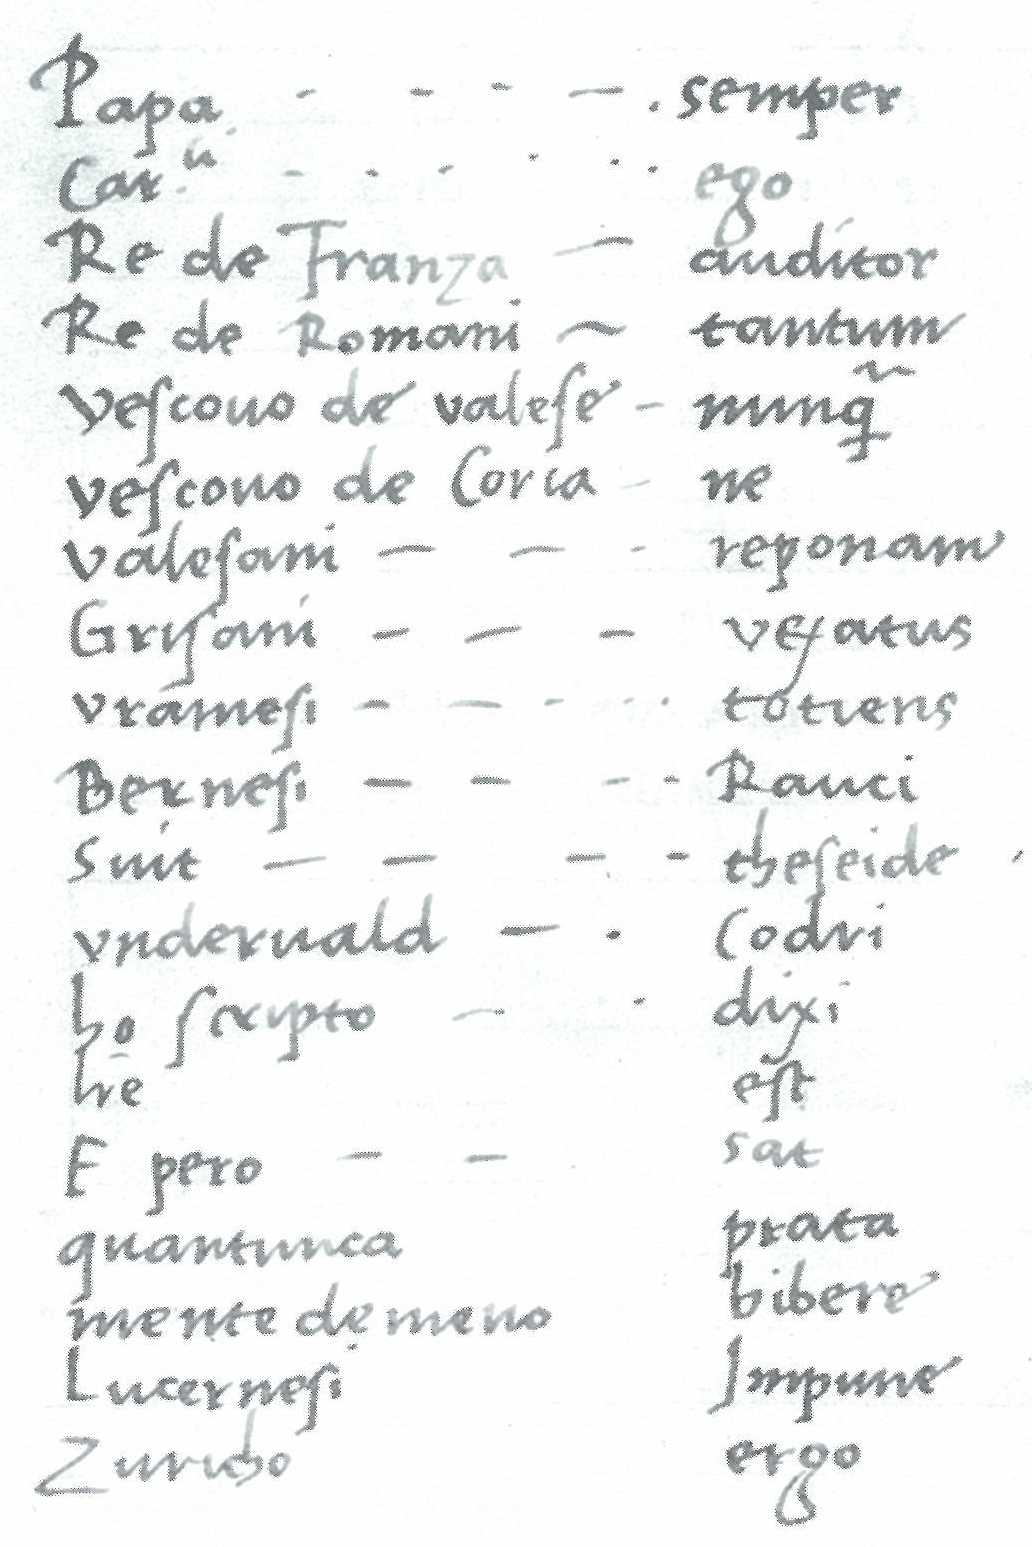 Papa - - - - . semper
Car.li - - - . . . ego
Re de Franza - auditor
Re de Romani ~ tantum
Veſcouo de valeſe - nunq̃
veſcouo de Coria - ne
Valeſani - - - reponam
Griſani - - - vexatus
vraneſi - - - . . totiens
Berneſi - - - - Rauci
Suit - - - - theſeide
vnderuald - . Codri
ho ſcripto - . dixi
hre eſt
E pero - - sat
quantunca prata
mente de meno bibere
Lucerneſi Impune
Zuricho ergo